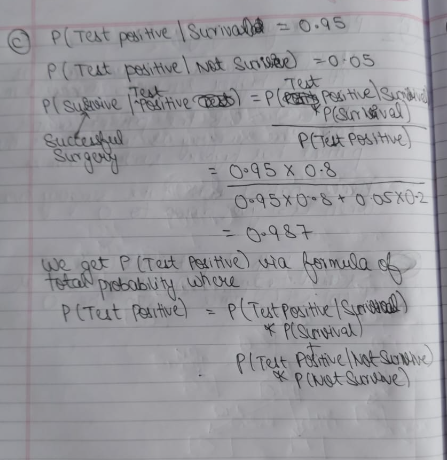 (c) P(Test positive | Survival) = 0.95
P(Test positive | Not Survive) = 0.05
P(Survive | Test Positive) = P(Test Positive | Survival) * P(Survival)
P(Test Positive)
Successful Surgery
= 0.95 x 0.8
0.95x0.8 + 0.05x0.2
= 0.987
We get P(Test Positive) via formula of
total probability where
P(Test Positive) = P(Test Positive | Survival)
* P(Survival)
+
P(Test Positive | Not Survive)
* P(Not Survive)